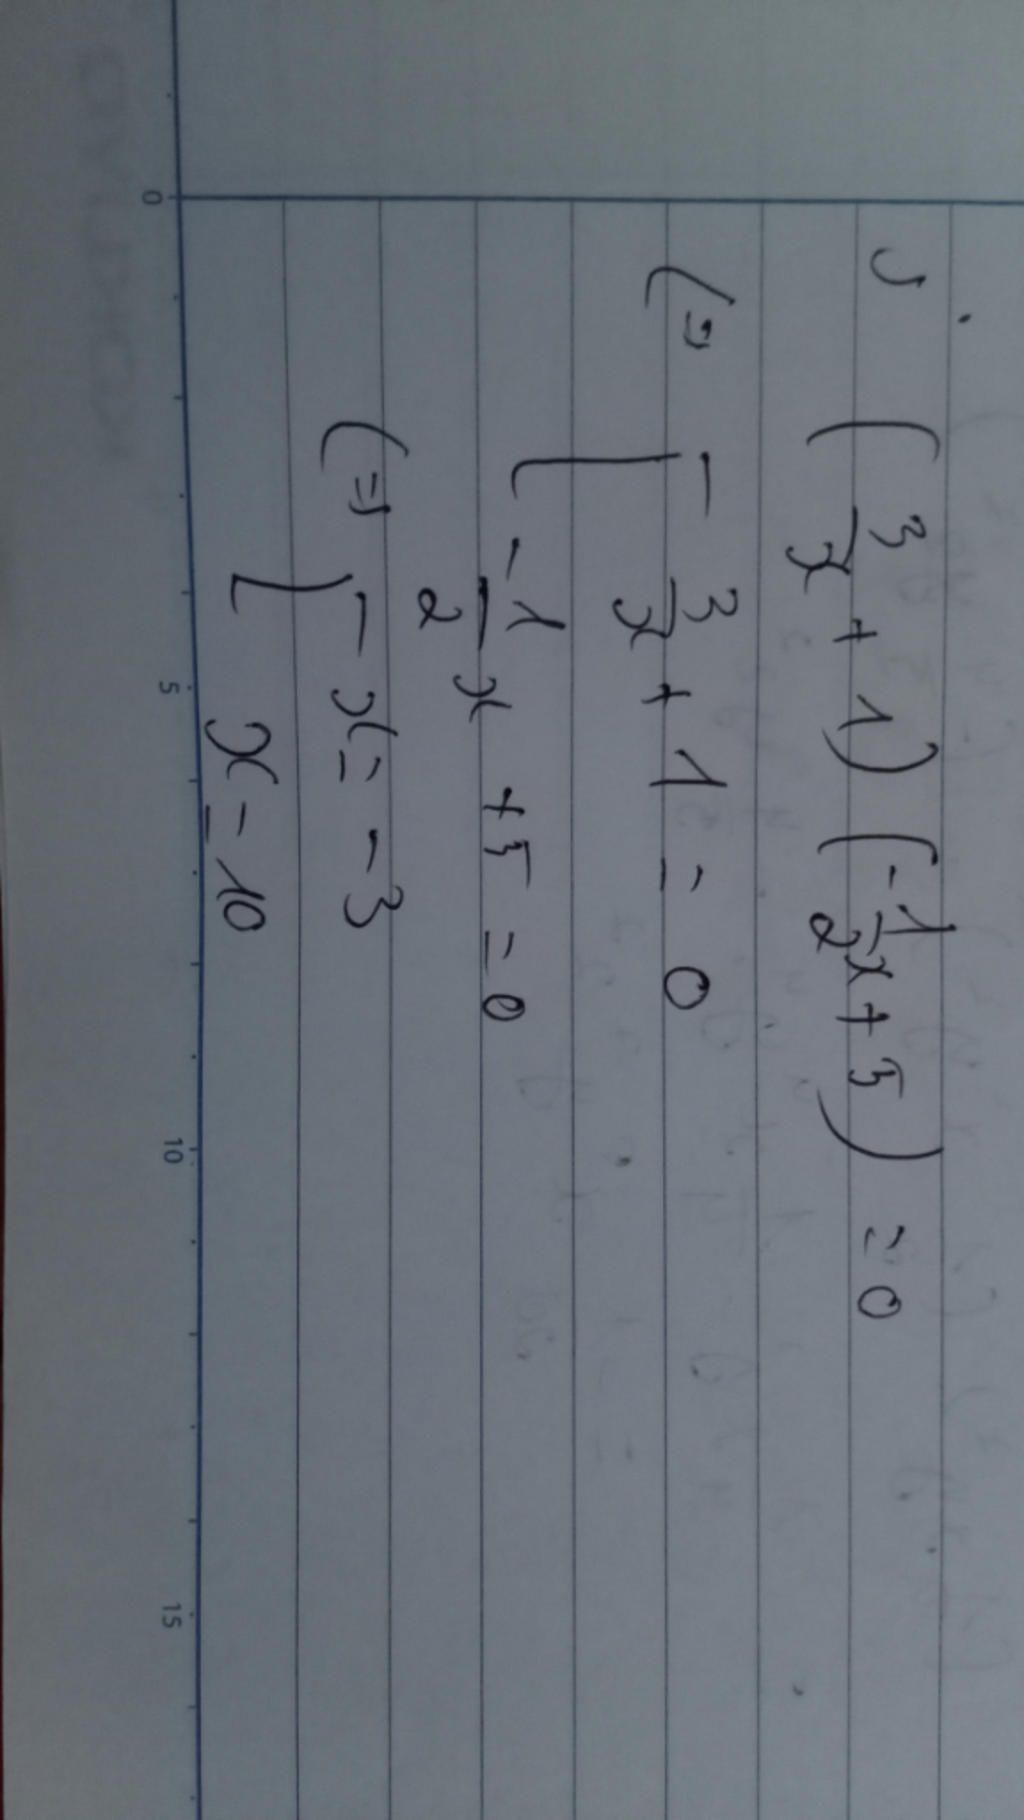 (3/x + 1) (-1/2 x + 5) = 0
(=) [ 3/x + 1 = 0
-1/2 x + 5 = 0
(=) [ x = -3
x = 10
0 5 10 15